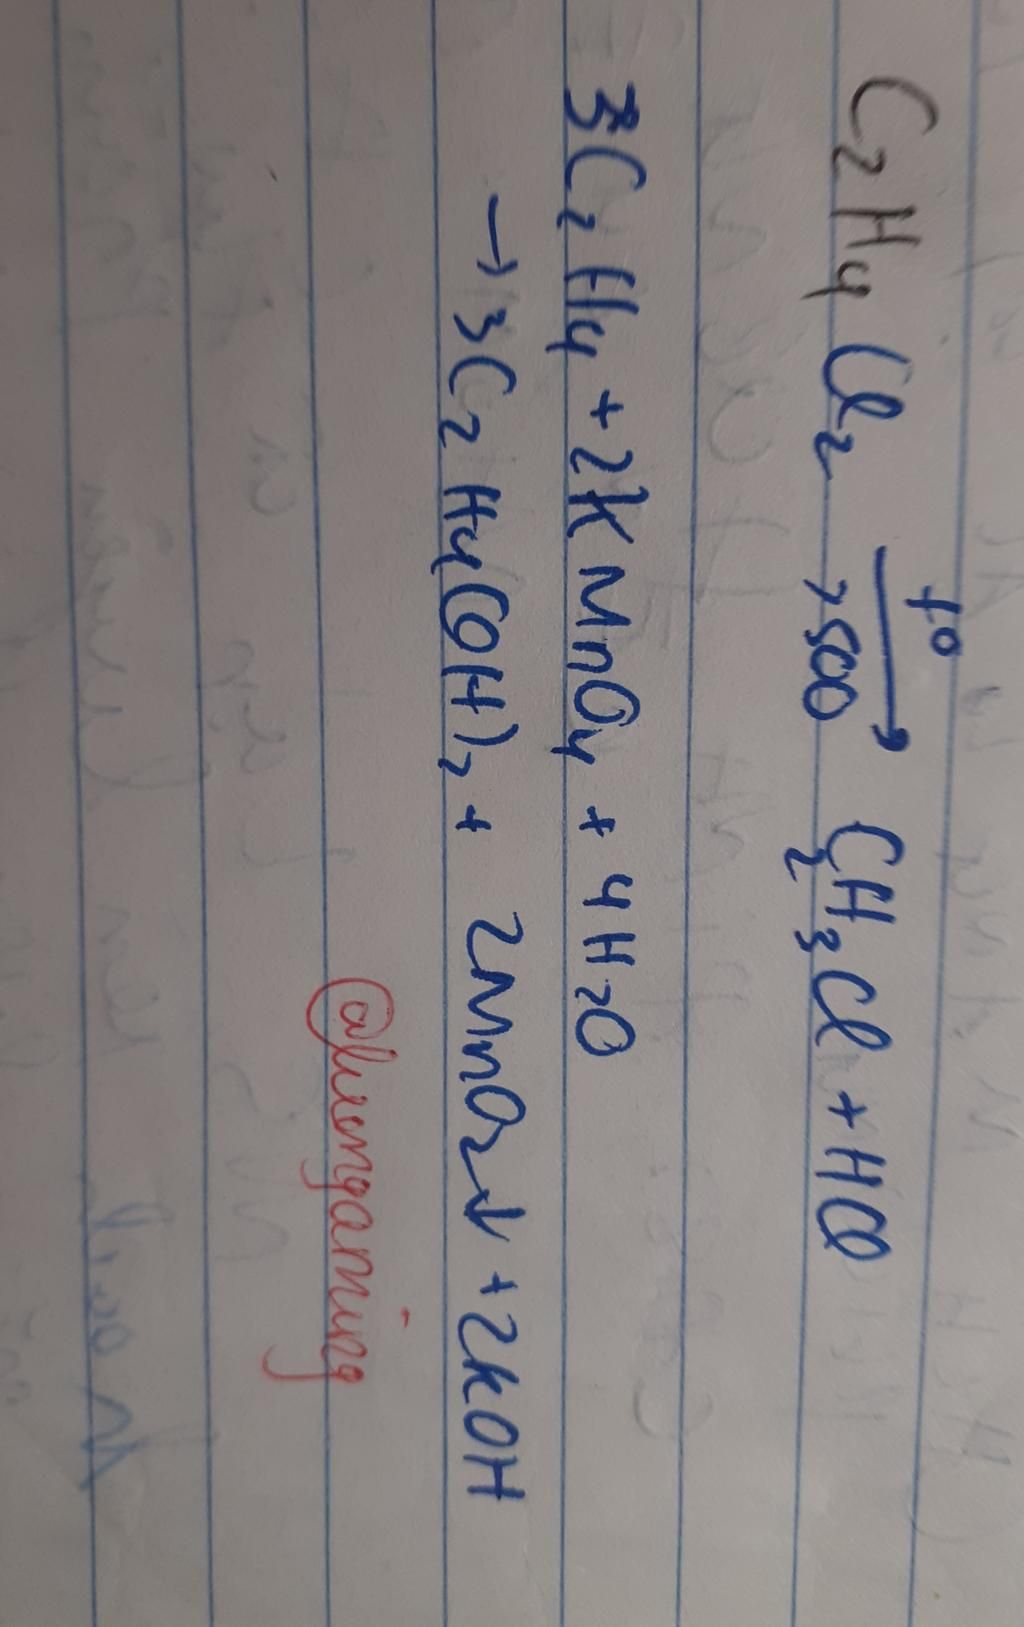 t⁰
C₂H₄Cl₂ → C₂H₃Cl + HCl
>500
3C₂H₄ + 2KMnO₄ + 4H₂O
→ 3C₂H₄(OH)₂ + 2MnO₂↓ + 2KOH
@luongaming